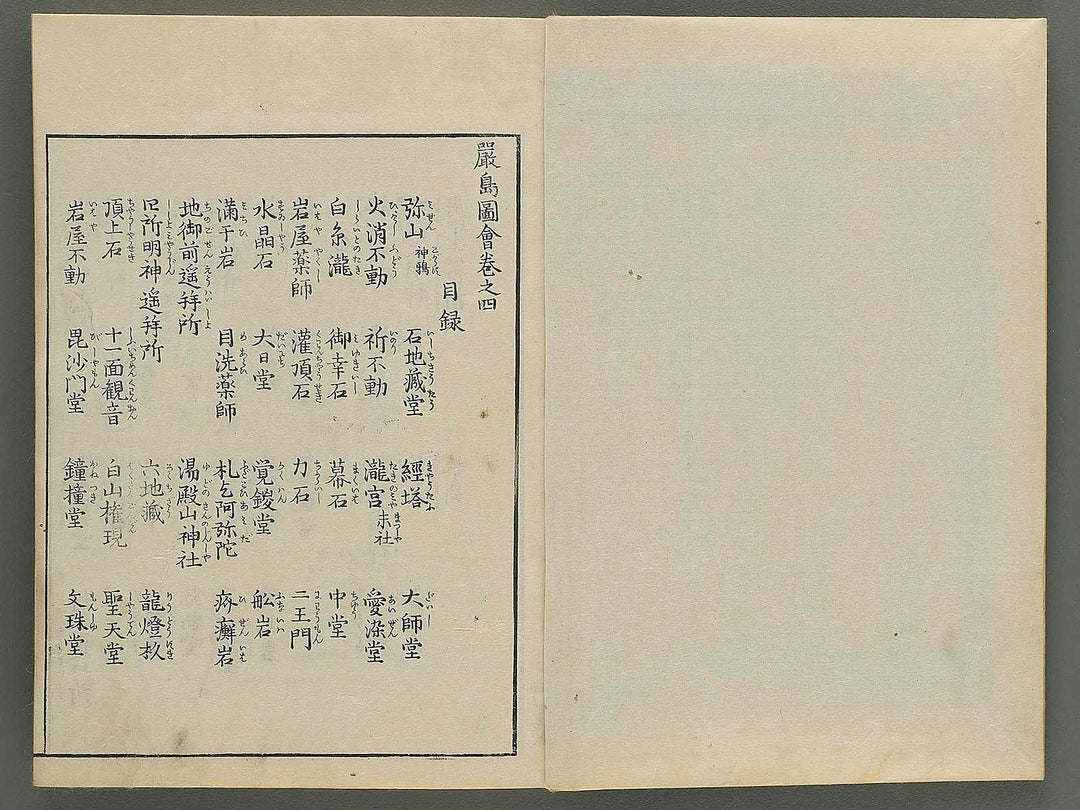 嚴島圖會卷之四
目録
弥山 神鴉 石地藏堂 經塔 大師堂
火消不動 祈不動 瀧宮 末社 愛染堂
白糸瀧 御幸石 幕石 中堂
岩屋藥師 灌頂石 力石 二王門
水晶石 大日堂 覚鑁堂 舩岩
満干岩 目洗藥師 札乞阿弥陀 疥癬岩
地御前遥拜所 湯殿山神社
四所明神遥拜所 六地藏 龍燈杉
頂上石 十一面観音 白山権現 聖天堂
岩屋不動 毘沙門堂 鐘撞堂 文珠堂